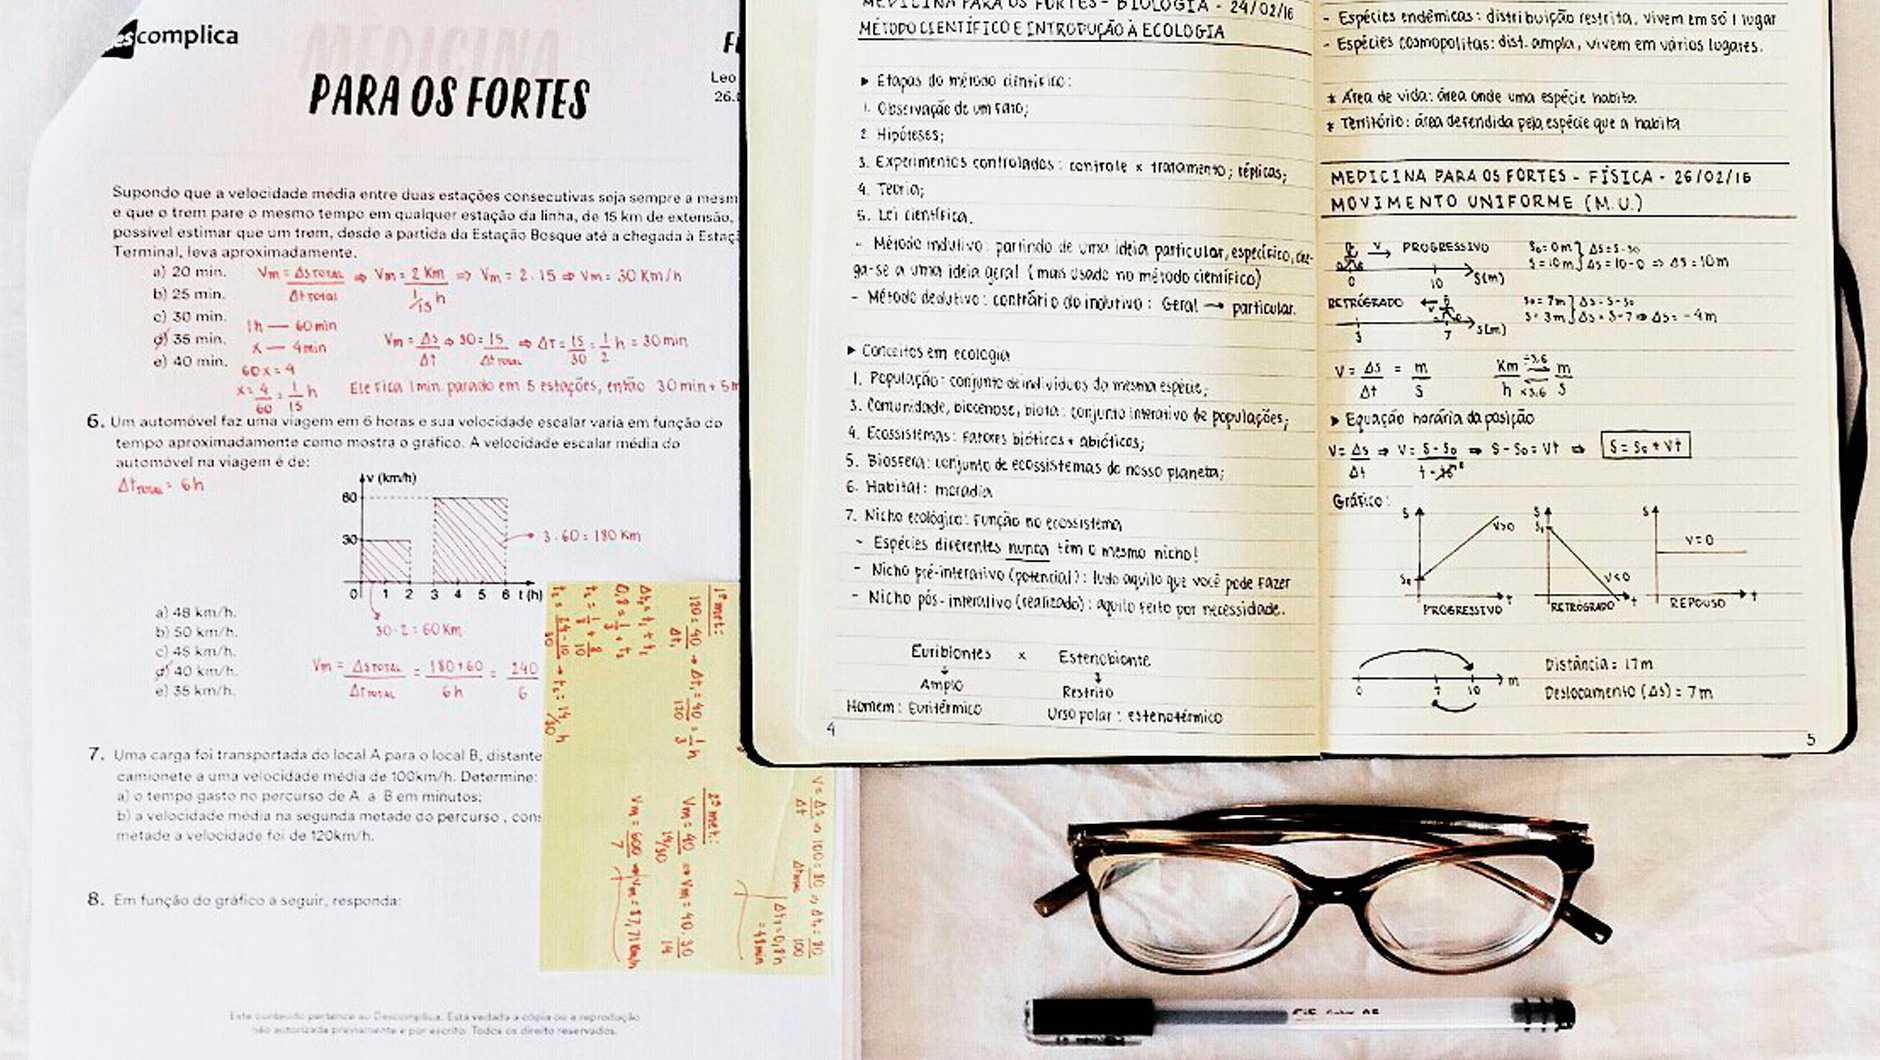 descomplica
MEDICINA
PARA OS FORTES
Leo
26.
Supondo que a velocidade média entre duas estações consecutivas seja sempre a mesm
e que o trem pare o mesmo tempo em qualquer estação da linha, de 15 km de extensão,
possível estimar que um trem, desde a partida da Estação Bosque até a chegada à Estaçã
Terminal, leva aproximadamente.
a) 20 min.
b) 25 min.
c) 30 min.
d) 35 min.
e) 40 min.
Vm = ΔS TOTAL / Δt TOTAL ⇒ Vm = 2 Km / 1/15 h ⇒ Vm = 2 . 15 ⇒ Vm = 30 Km/h
1h — 60 min
x — 4 min
60x = 4
x = 4/60 = 1/15 h
Vm = Δs/Δt ⇒ 30 = 15/Δt TOTAL ⇒ Δt = 15/30 = 1/2 h = 30 min
Ele fica 1 min. parado em 5 estações, então 30 min + 5 m
6. Um automóvel faz uma viagem em 6 horas e sua velocidade escalar varia em função do
tempo aproximadamente como mostra o gráfico. A velocidade escalar média do
automóvel na viagem é de:
Δt TOTAL = 6h
v (km/h)
60
30
0 1 2 3 4 5 6 t (h)
3 . 60 = 180 Km
30 . 2 = 60 Km
a) 48 km/h.
b) 50 km/h.
c) 45 km/h.
d) 40 km/h.
e) 35 km/h.
Vm = ΔS TOTAL / Δt TOTAL = 180+60 / 6h = 240 / 6
7. Uma carga foi transportada do local A para o local B, distante
camionete a uma velocidade média de 100km/h. Determine:
a) o tempo gasto no percurso de A a B em minutos;
b) a velocidade média na segunda metade do percurso , cons
metade a velocidade foi de 120km/h.
8. Em função do gráfico a seguir, responda:
Este conteúdo pertence ao Descomplica. Está vedada a cópia ou a reprodução
não autorizada previamente e por escrito. Todos os direito reservados.
V = Δs/Δt ⇒ 100 = 80/Δt TOTAL ⇒ Δt = 80/100
Δt = 0,8 h
= 48 min
1º met:
120 = 40/Δt₁ → Δt₁ = 40/120 = 1/3 h
Δt = t₁ + t₂
0,8 = 1/3 + t₂
t₂ = 14/30 h
2º met:
Vm = 40 / 14/30 ⇒ Vm = 40 . 30/14
Vm = 600/7 ⇒ Vm = 87,71 km/h
MEDICINA PARA OS FORTES - BIOLOGIA - 24/02/16
MÉTODO CIENTÍFICO E INTRODUÇÃO À ECOLOGIA
▸ Etapas do método científico:
1. Observação de um fato;
2. Hipóteses;
3. Experimentos controlados: controle x tratamento; réplicas;
4. Teoria;
5. Lei científica.
- Método indutivo: partindo de uma ideia particular, específico, che-
ga-se a uma ideia geral (mais usado no método científico)
- Método dedutivo: contrário do indutivo: Geral → particular.
▸ Conceitos em ecologia
1. População: conjunto de indivíduos da mesma espécie;
3. Comunidade, biocenose, biota: conjunto interativo de populações;
4. Ecossistemas: Fatores bióticos + abióticos;
5. Biosfera: conjunto de ecossistemas do nosso planeta;
6. Habitat: moradia
7. Nicho ecológico: Função no ecossistema
- Espécies diferentes nunca têm o mesmo nicho!
- Nicho pré-interativo (potencial): tudo aquilo que você pode fazer
- Nicho pós-interativo (realizado): aquilo feito por necessidade.
Euribiontes x Estenobionte
Amplo Restrito
Homem: Euritérmico Urso polar: estenotérmico
4
- Espécies endêmicas: distribuição restrita, vivem em só 1 lugar
- Espécies cosmopolitas: dist. ampla, vivem em vários lugares.
* Área de vida: área onde uma espécie habita.
* Território: área defendida pela espécie que a habita
MEDICINA PARA OS FORTES - FÍSICA - 26/02/16
MOVIMENTO UNIFORME (M.U.)
V → PROGRESSIVO
0 10 S(m)
S₀ = 0m } ΔS = S - S₀
S = 10m } ΔS = 10 - 0 ⇒ ΔS = 10m
RETRÓGRADO ← V
3 7 S(m)
S₀ = 7m } ΔS = S - S₀
S = 3m } ΔS = 3 - 7 ⇒ ΔS = -4m
V = Δs/Δt = m/s
Km/h ÷3,6 m/s ×3,6
▸ Equação horária da posição
V = Δs/Δt ⇒ V = S - S₀ / t - t₀ ⇒ S - S₀ = Vt ⇒ S = S₀ + Vt
Gráfico:
S S₀ V>0 t PROGRESSIVO
S S₀ V<0 t RETRÓGRADO
S V = 0 t REPOUSO
0 7 10 m
Distância = 17m
Deslocamento (Δs) = 7m
5